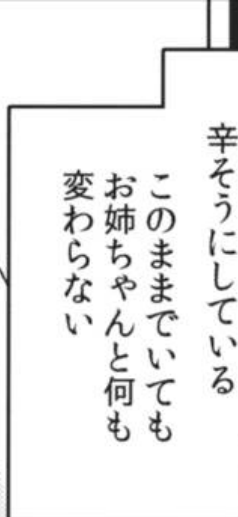 辛そうにしている
このままでいても
お姉ちゃんと何も
変わらない